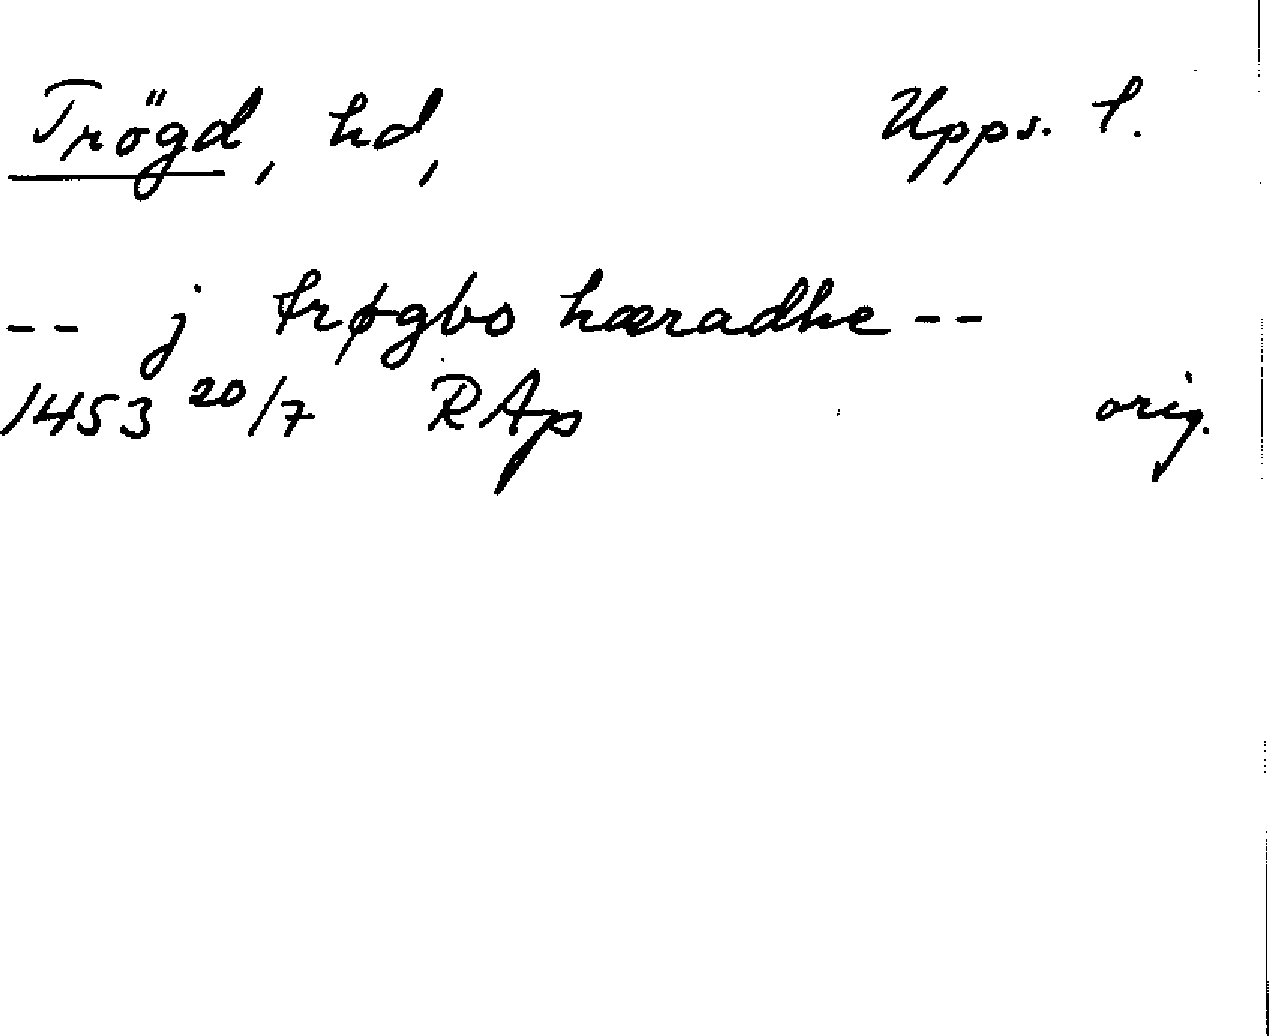 Trögd, hd, Upps. l.
-- j trøgbo hæradhe --
1453 20/7 RAp orig.